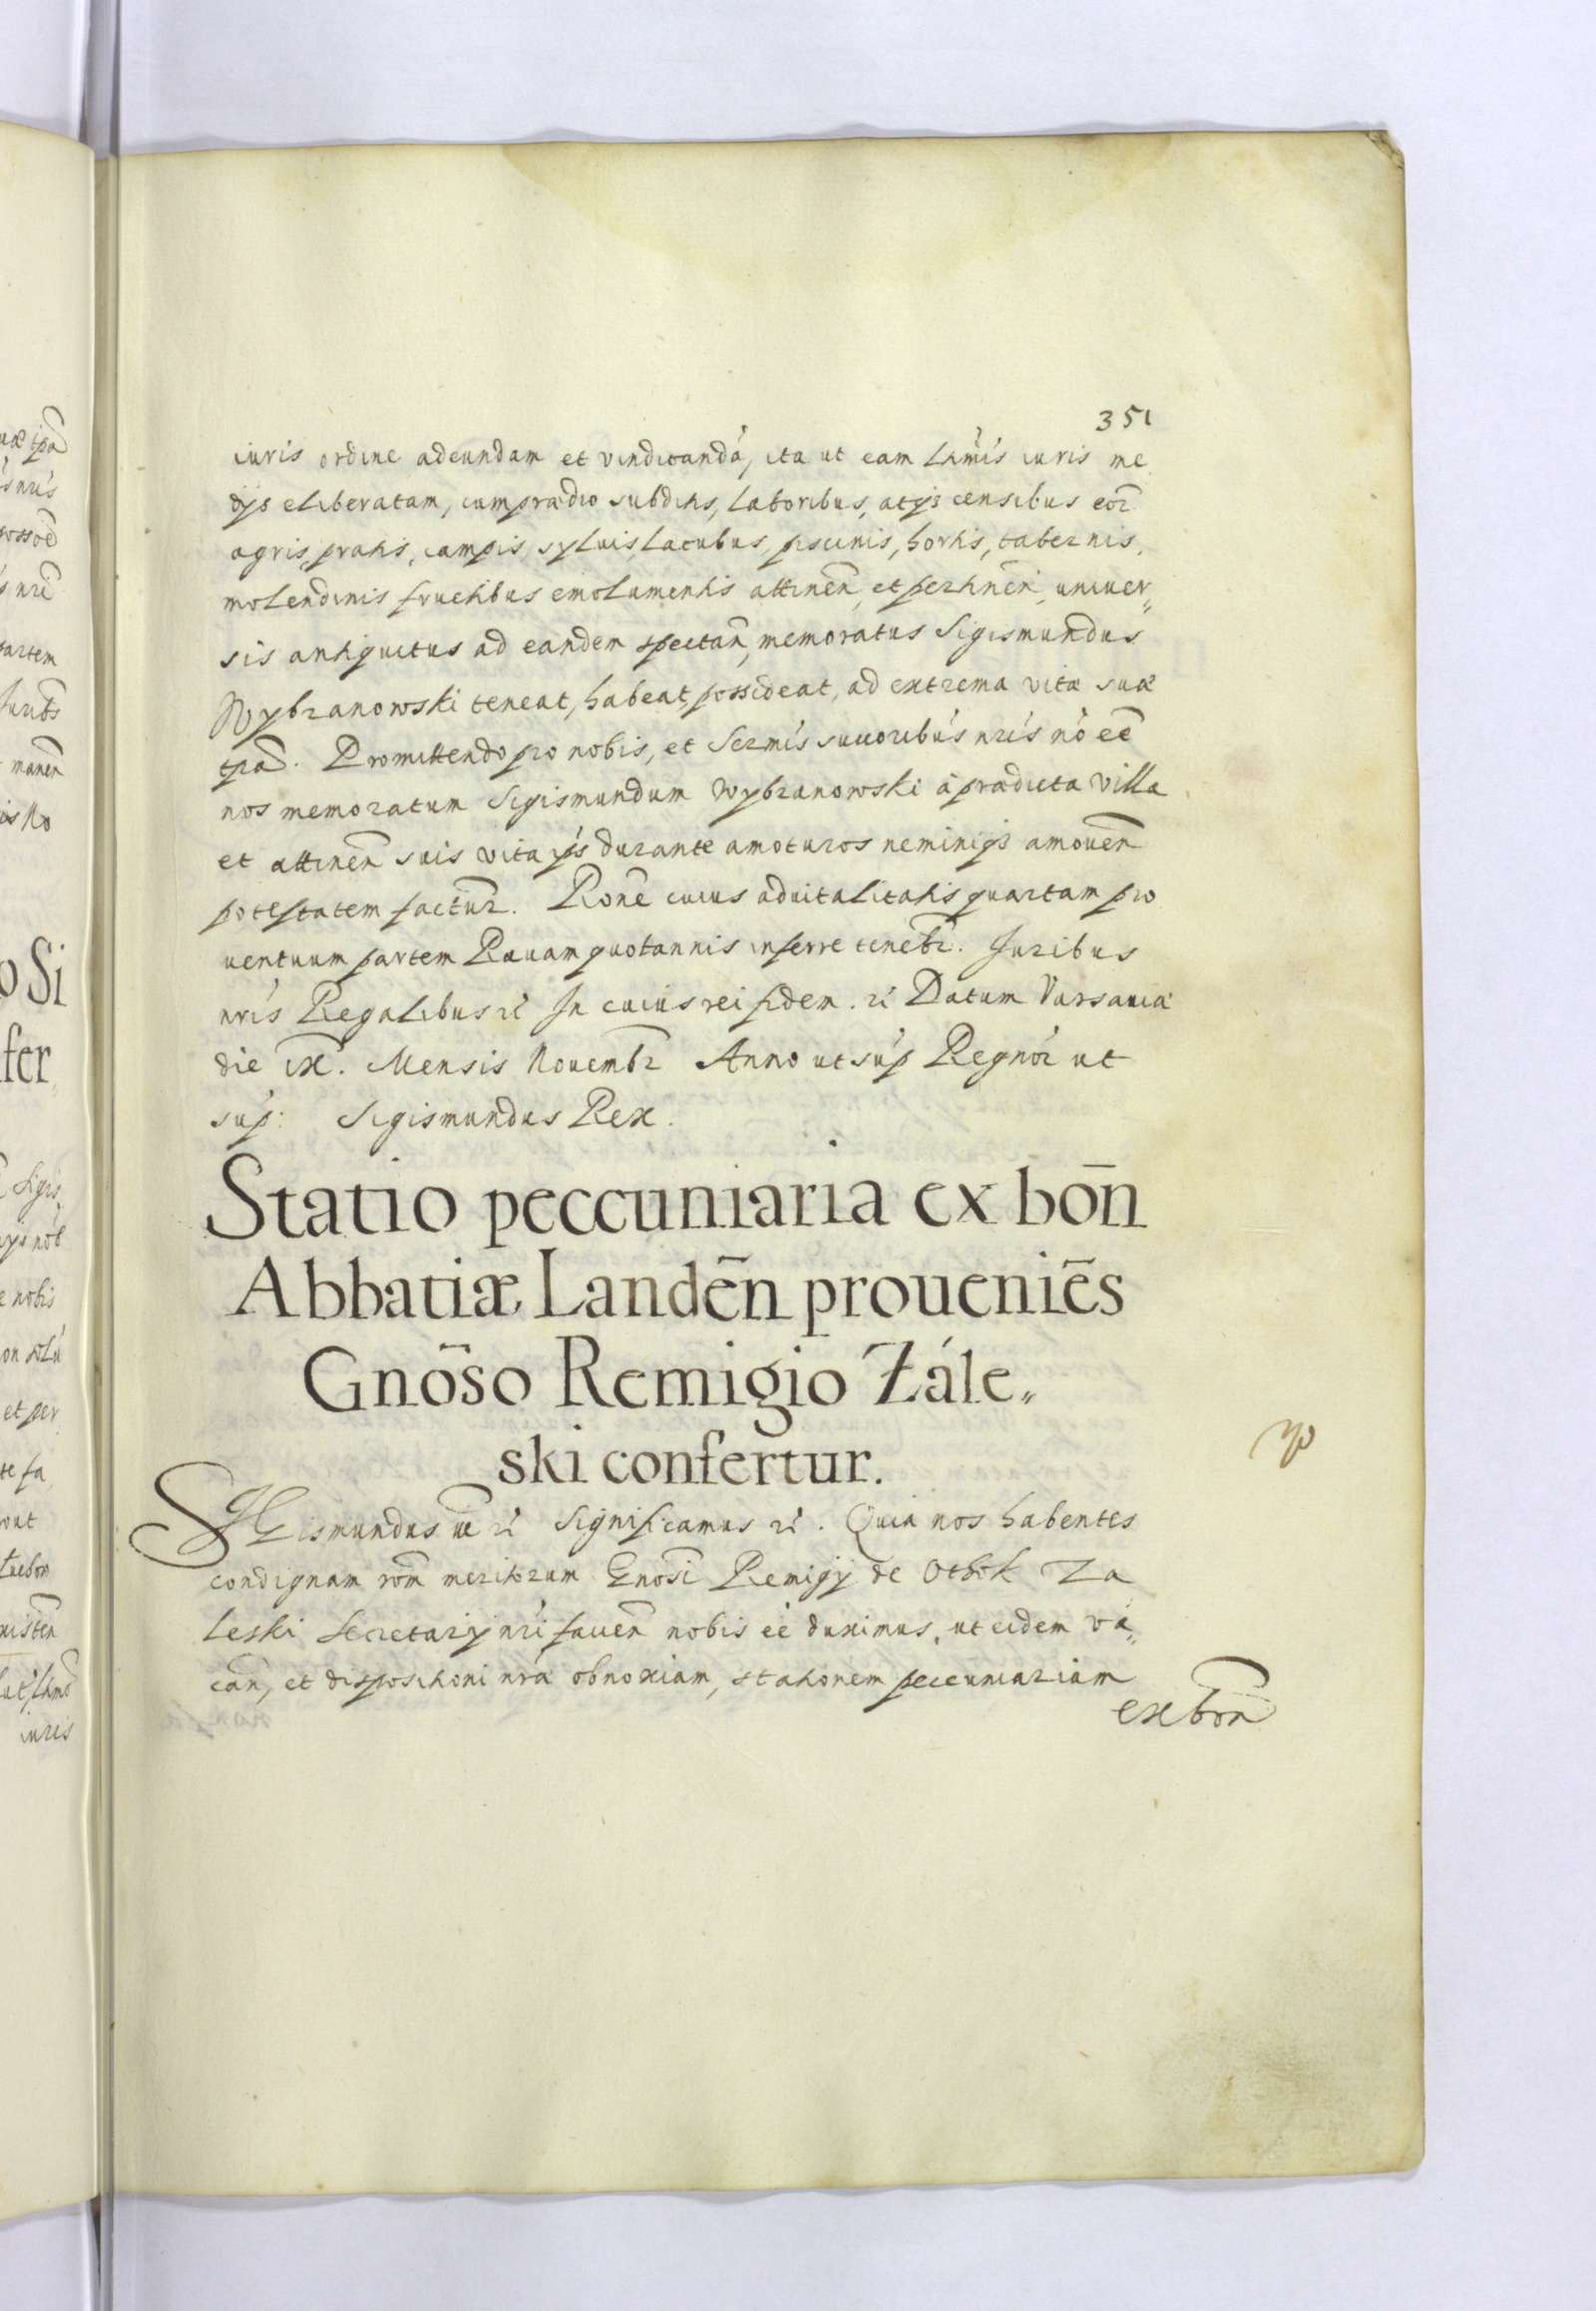 351
iuris ordine adeundam et vindicandá, ita ut eam Ltimis iuris me
dys eliberatam, cum prædio subditis, laboribus, atqз censibus eor̃
agris, pratis, campis, syluis, lacubus, piscinis, hortis, tabernis,
molendinis fructibus emolumentis attineñ, et pertineñ, uniuer„
sis antiquitus ad eandem spectañ, memoratus Sigismundus
Wybranowski teneat, habeat, possideat, ad extrema vitæ suæ
tpã. Promittendo pro nobis, et Sermis succoribus nris nõ eẽ
nos memoratum Sigismundum Wybranowski à prædicta villa
et attineñ suis vita ips durante amoturos neminiqз amoueñ
potestatem factur̃. Rone cuius aduitalitatis quartam pro
uentuum partem Rauam quotannis inferre tenebr̃. Juribus
nris Regalibus ꝛc̃ In cuius rei fidem. ꝛc̃ Datum Varsauiæ
die ix. Mensis Nouembr̃ Anno ut sup Regnor̃ ut
sup: Sigismundus Rex.
Statio peccuniaria ex bon̄
Abbatiæ Landen̄ proueniēs
Gnōso Remigio Zále„
ski confertur.
SIGismundus ꝛc̃ Significamus ꝛc̃. Quia nos habentes
condignam rom̃ meritorum Gnosi Remigij de Othok Za
leski Secretarij nri faueñ nobis eẽ duximus, ut eidem va„
cañ, et dispositioni nræ obnoxiam, stationem pecuniariam
ex boñ